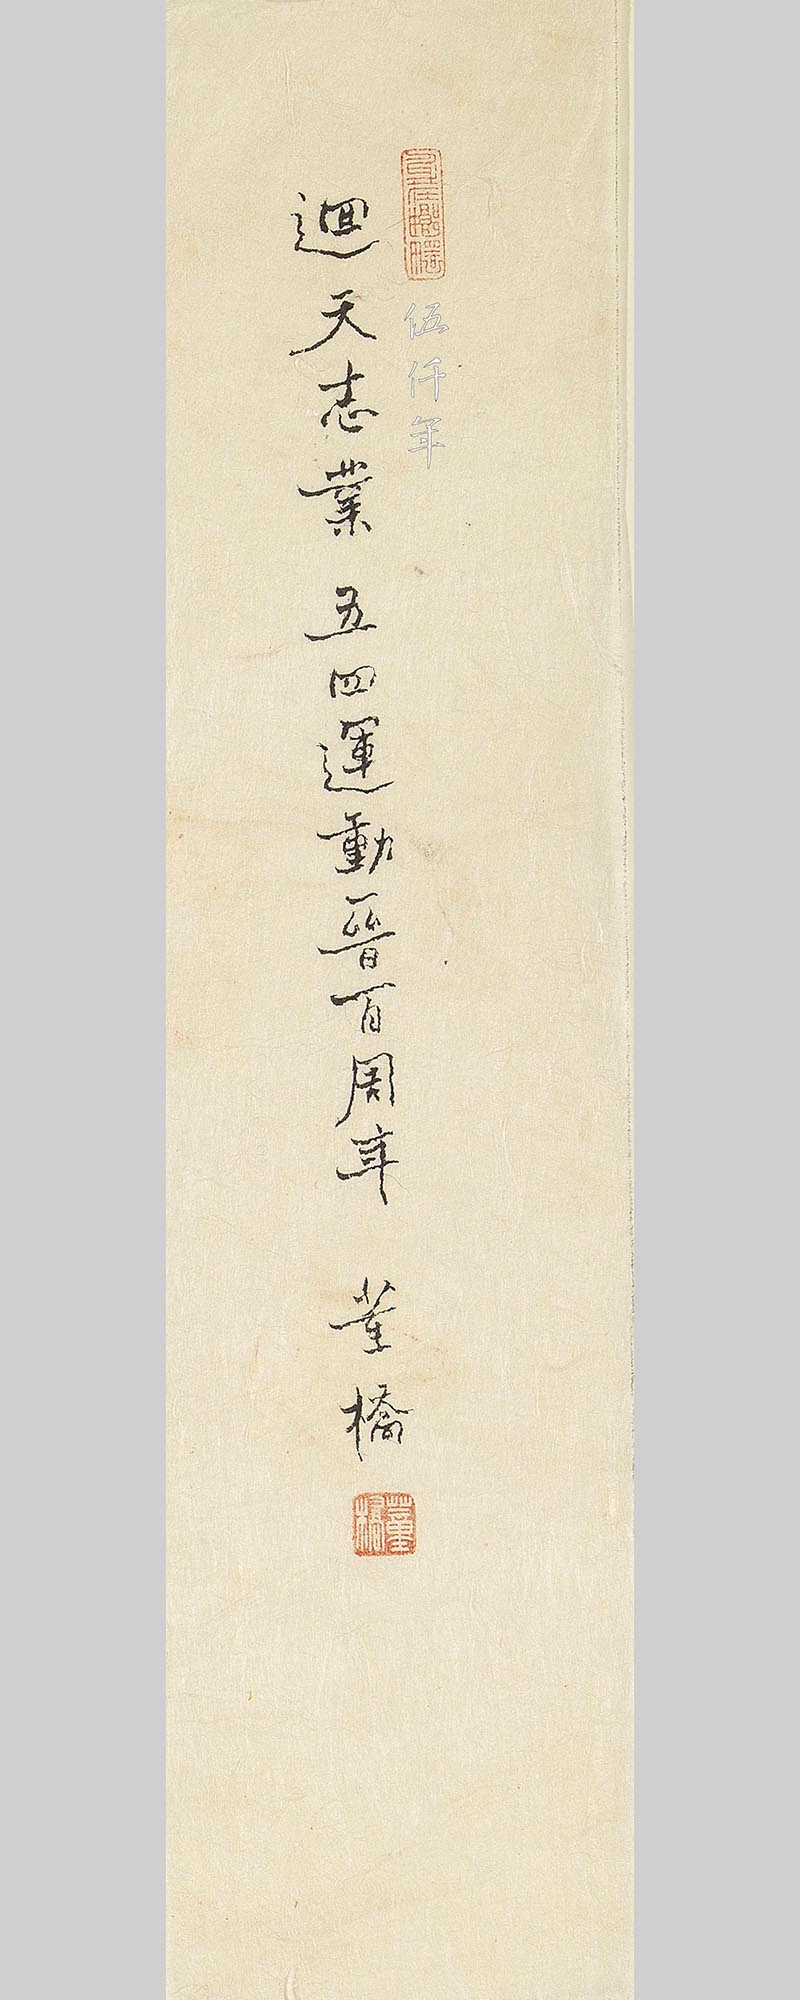 伍仟年
迴天志業 五四運動晉百周年 董橋
董橋